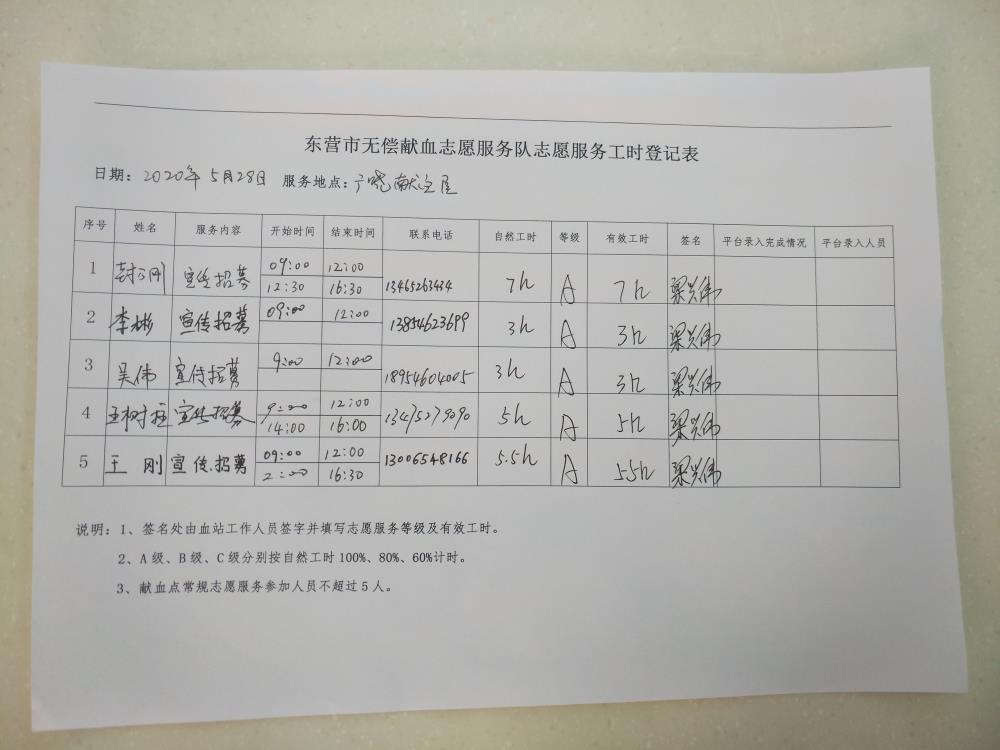 东营市无偿献血志愿服务队志愿服务工时登记表
日期：2020年5月28日 服务地点：广饶献血屋
序号 姓名 服务内容 开始时间 结束时间 联系电话 自然工时 等级 有效工时 签名 平台录入完成情况 平台录入人员
1 宣传招募 09:00 12:00 13465263434 7h A 7h 梁兴伟
12:30 16:30
2 李彬 宣传招募 09:00 12:00 13854623699 3h A 3h 梁兴伟
3 吴伟 宣传招募 9:00 12:00 18954604005 3h A 3h 梁兴伟
4 王树柱 宣传招募 9:00 12:00 13475279090 5h A 5h 梁兴伟
14:00 16:00
5 王刚 宣传招募 09:00 12:00 13006548166 5.5h A 5.5h 梁兴伟
2:00 16:30
说明：1、签名处由血站工作人员签字并填写志愿服务等级及有效工时。
2、A级、B级、C级分别按自然工时100%、80%、60%计时。
3、献血点常规志愿服务参加人员不超过5人。